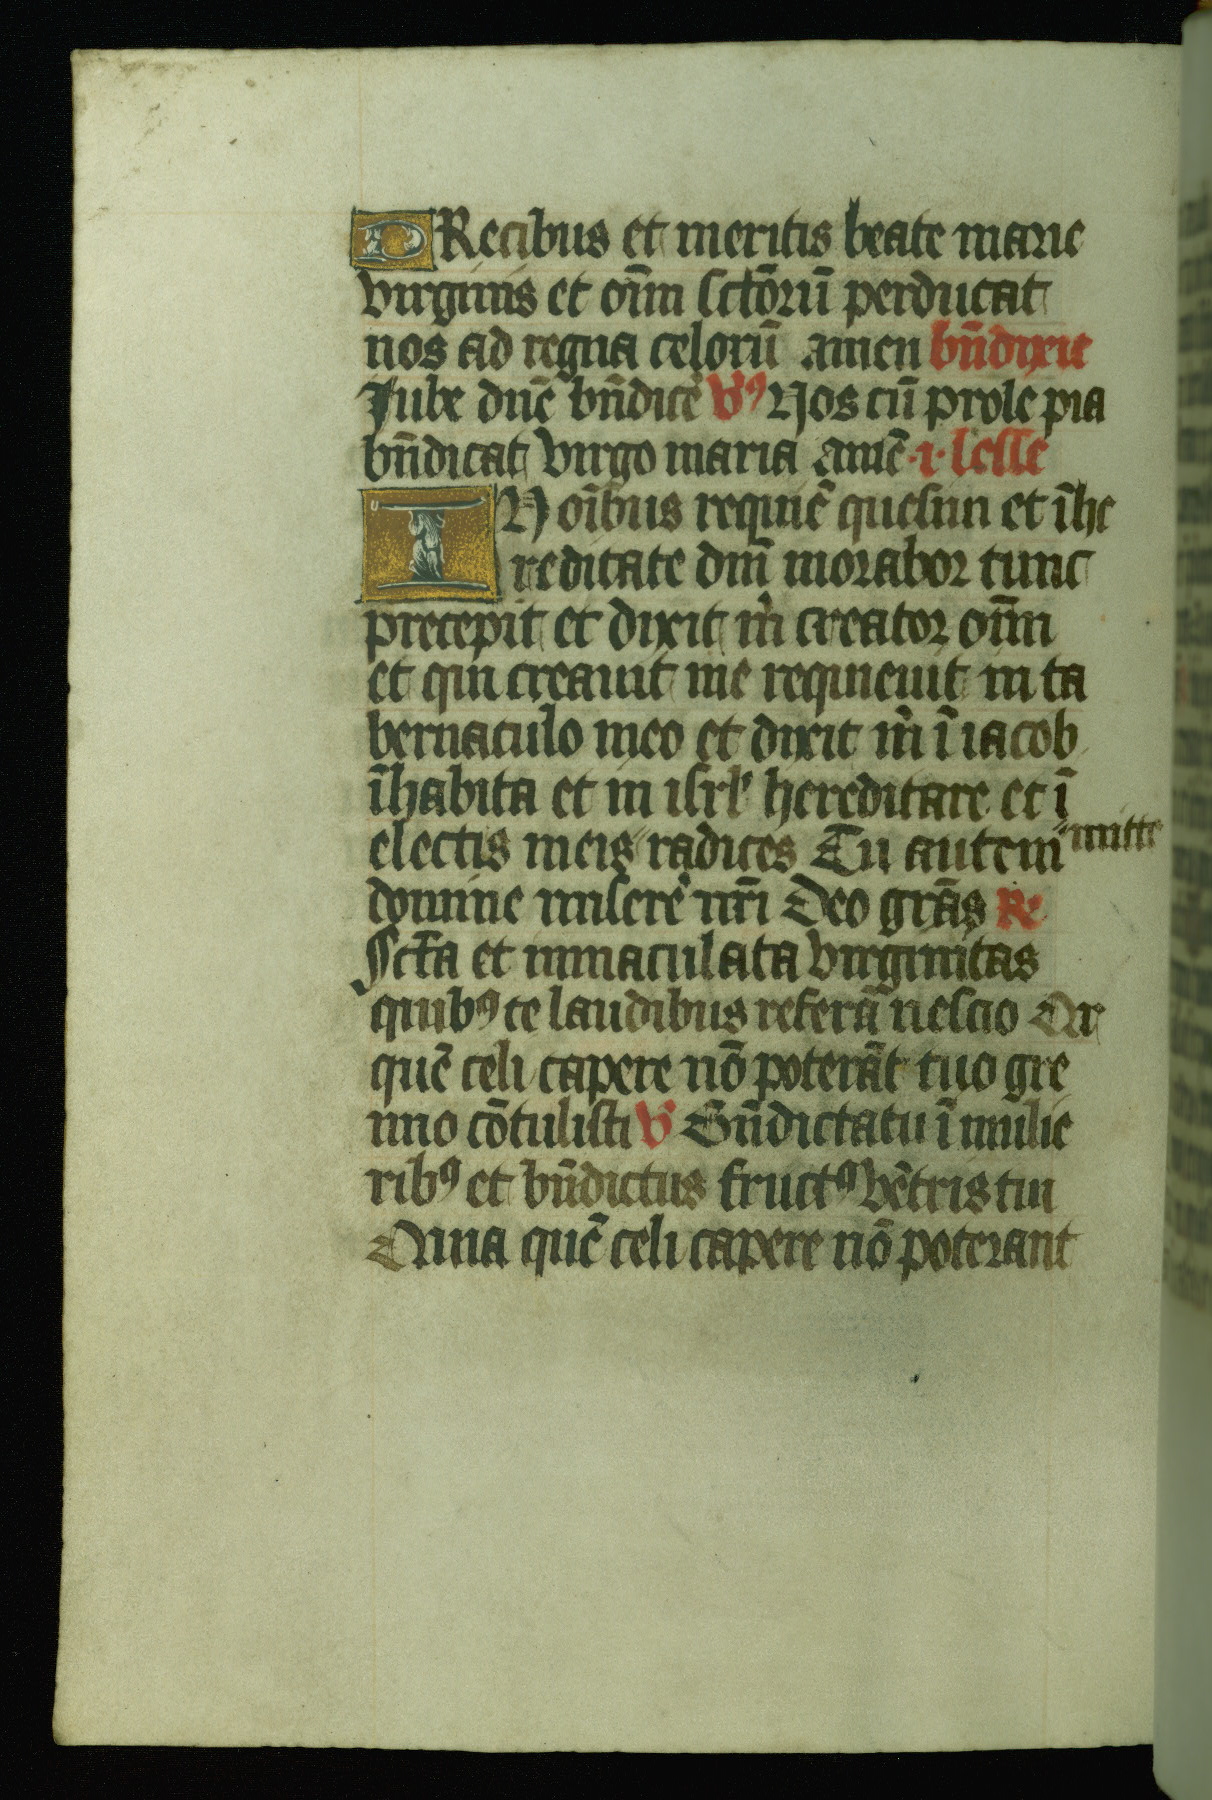 PRecibus et meritis beate marie
virginis et oīm sctōrū perducat
nos ad regna celorū amen bn̄dixit
Jube dn̄e bn̄dicē Vꝰ Nos cū prole pia
bn̄dicat virgo maria amē .i. lesse
IN oībus requiē quesiui et ī he
reditate dn̄i morabor tunc
precepit et dixit m̄ creator oīm
et qui creauit me requieuit in ta
bernaculo meo et dixit m̄ ī iacob
īhabita et in isrl̓ hereditare et ī
electis meis " radices Tu autem "mitte
domine miserē nr̄i Deo grās R
Sct̄a et inmaculata virginitas
quibꝰ te laudibus referā nescio Qr
quē celi capere nō poterāt tuo gre
mio cōtulisti V Bn̄dictatu ī mulie
ribꝰ et bn̄dictus fructꝰ vētris tui
Quia quē celi capere nō poterant